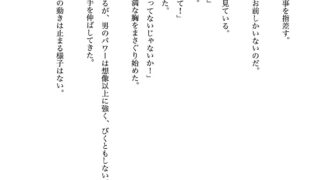 事を指差す。
お前しかいないのだ。
見ている。
」
て！」
ってないじゃないか！」
満な胸をまさぐり始めた。
るが、男のパワーは想像以上に強く、びくともしない。
手を伸ばしてきた。
の動きは止まる様子はない。